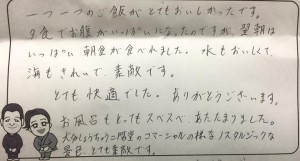 一つ一つのご飯がとてもおいしかったです。
夕食でお腹がいっぱいになったのですが、翌朝は
いっぱい朝食が食べれました。水もおいしくて、
海もきれいで、素敵です。
とても快適でした。ありがとうございます。
お風呂もとってもスベスベ、あたたまりました。
大分むぎしょうちゅう二階堂のコマーシャルの様なノスタルジックな
景色、とても素敵です。